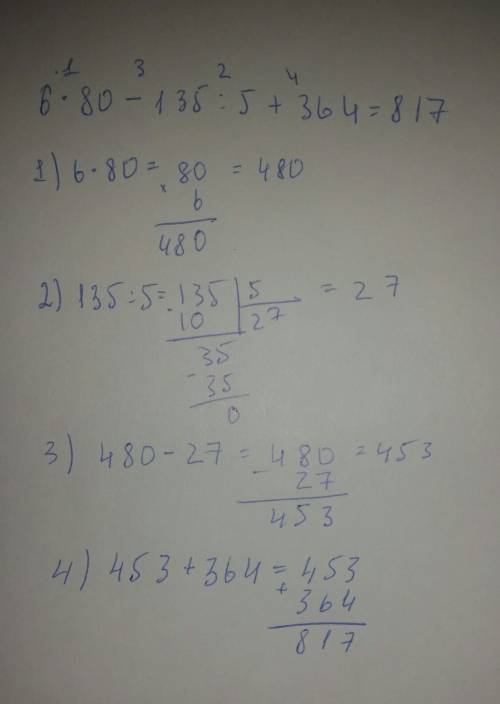 1 3 2 4
6·80-135÷5+364=817
1) 6·80= 80 =480
× 6
480
2) 135÷5= 135 5 = 27
- 10 27
35
- 35
0
3) 480-27= 480 =453
- 27
453
4) 453+364= 453
+ 364
817